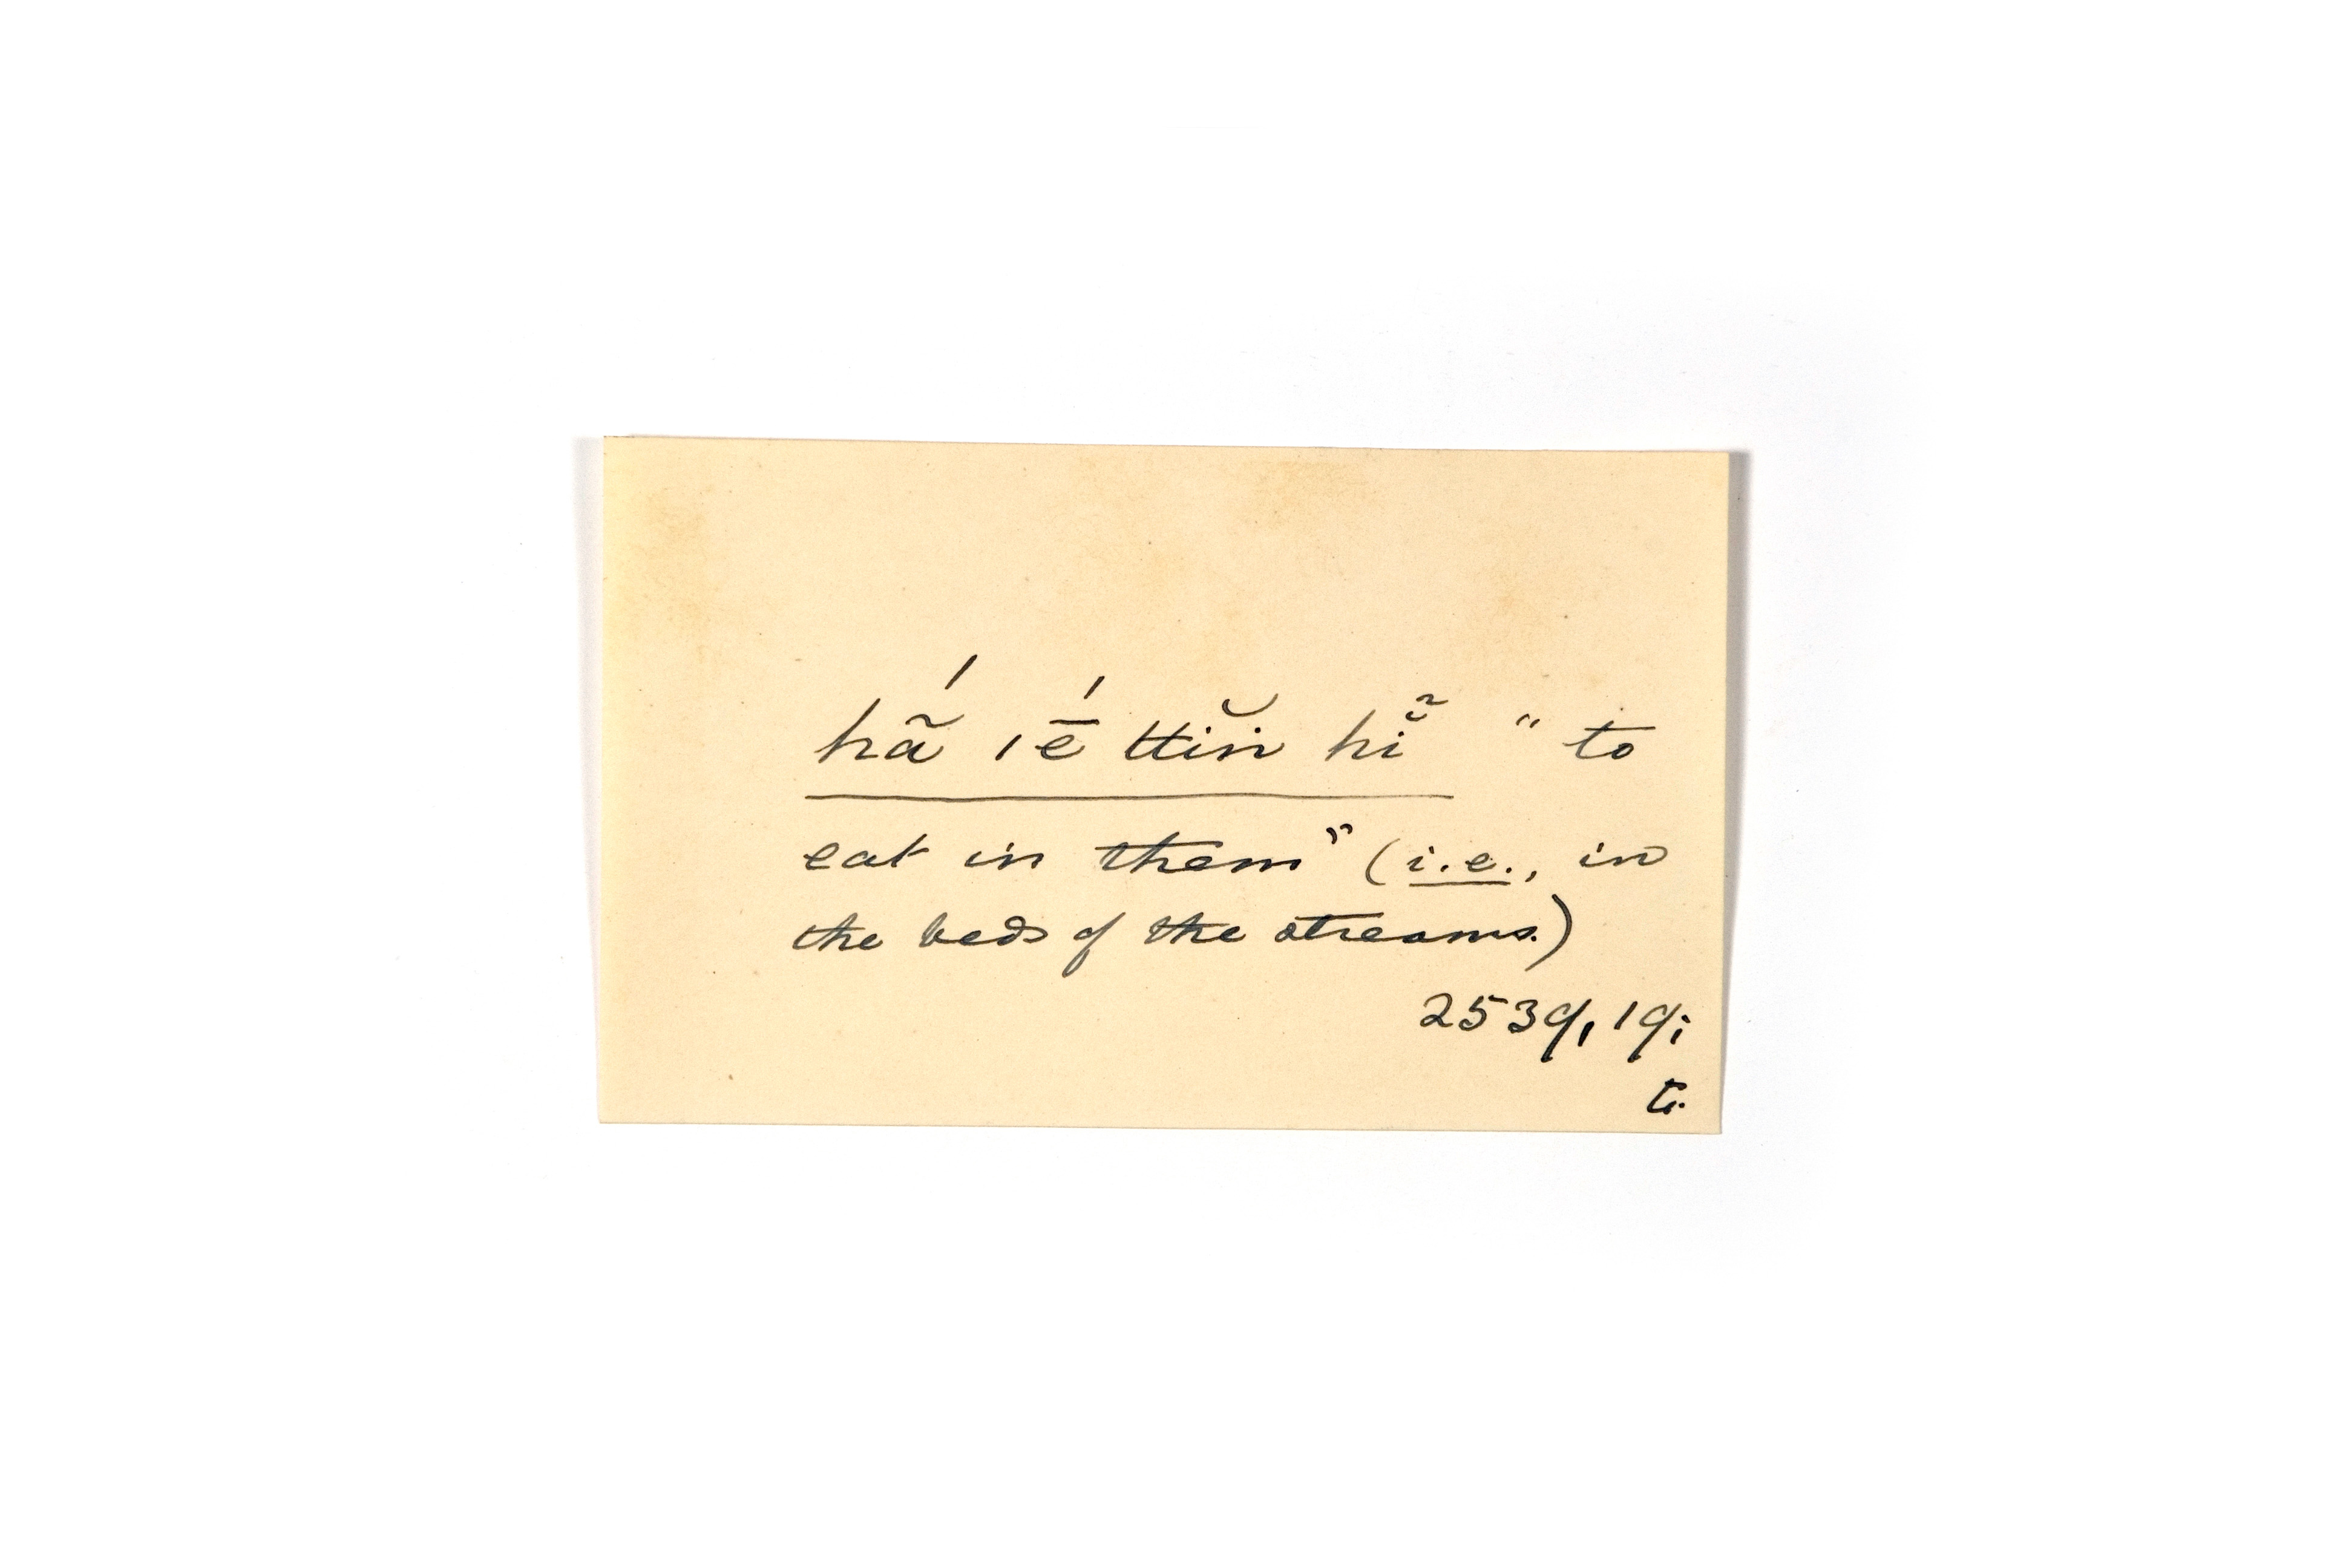 hã́ ıḗ ttĭn hĭ̃ "to
eat in them" (i.e., in
the beds of the streams.)
2539, 19;
t.